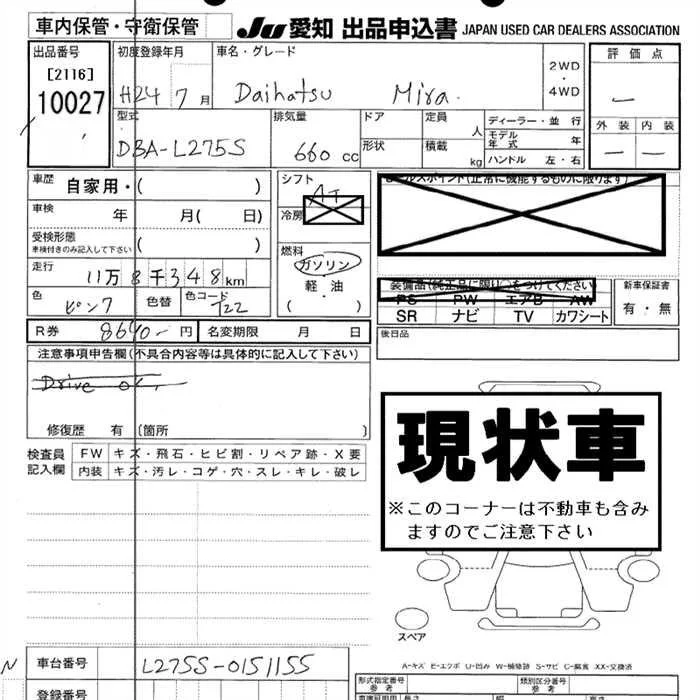 車内保管・守衛保管 JU 愛知 出品申込書 JAPAN USED CAR DEALERS ASSOCIATION
出品番号 初度登録年月 車名・グレード 2WD ・ 4WD 評価点
[2116]
10027 H24 7月 Daihatsu Mira. —
型式 排気量 ドア 定員 人 ディーラー・並行 外装 内装
DBA-L275S 660 cc 形状 積載 kg モデル年式 年 — —
ハンドル 左・右
車歴 自家用・( ) シフト AT
車検 年 月( 日) 冷房
受検形態 ( )
車検付きのみ記入して下さい
走行 11万8千348km 燃料 ガソリン・軽・油 ( )
色 ピンク 色替 色コード T22
装備品(純正品に限り○をつけてください) 新車保証書
PS PW エアB AW 有・無
SR ナビ TV カワシート
R券 8640-円 名変期限 月 日 後日品
注意事項申告欄(不具合内容等は具体的に記入して下さい)
Drive ok,
修復歴 有 〔箇所 〕
検査員 FW キズ・飛石・ヒビ割・リペア跡・X要
記入欄 内装 キズ・汚レ・コゲ・穴・スレ・キレ・破レ
現状車
※このコーナーは不動車も含み
ますのでご注意下さい
スペア
A-キズ E-エクボ U-凹み W-補修跡 S-サビ C-腐食 XX-交換済
N 車台番号 L275S-0151155
形式指定番号 類別区分番号
参考 参考
登録番号 長さ 幅 高さ